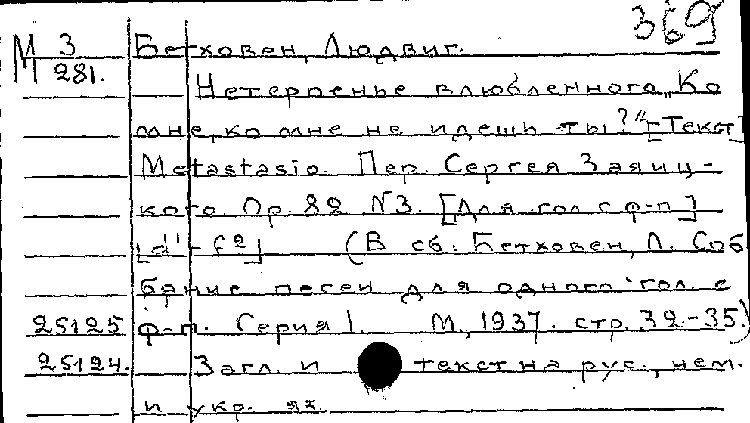 369
М 3 Бетховен, Людвиг.
М 281. Нетерпенье влюбленного „Ко
мне, ко мне не идешь ты?" [Текст]
Metastasio. Пер. Сергея Заяиц-
кого Op. 82 N3. [Для гол с ф-п]
(В сб: Бетховен, Л. Соб
рание песен для одного гол. с
25125 ф-п. Серия I. М, 1937. стр. 32-35.)
25124. Загл. и текст на рус., нем.
и укр. яз.